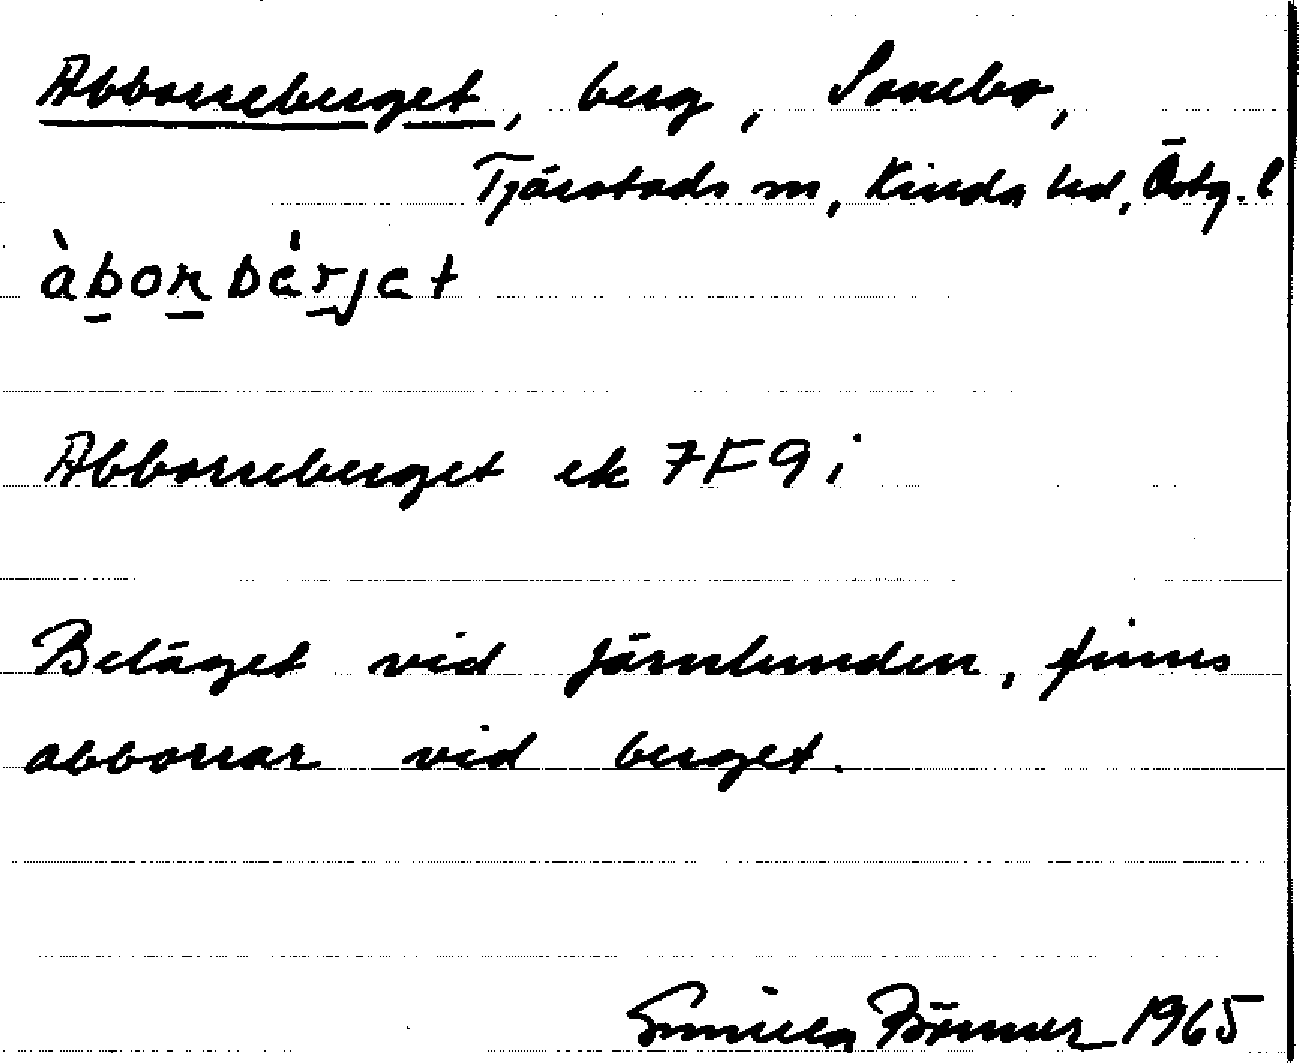 Abborreberget, berg, Sonebo,
Tjärstads sn, Kinda hd, Östg. l
àbon bérjet
Abborreberget ek 7F9i
Beläget vid Järnlunden, finns
abborrar vid berget.
Gunilla 1965